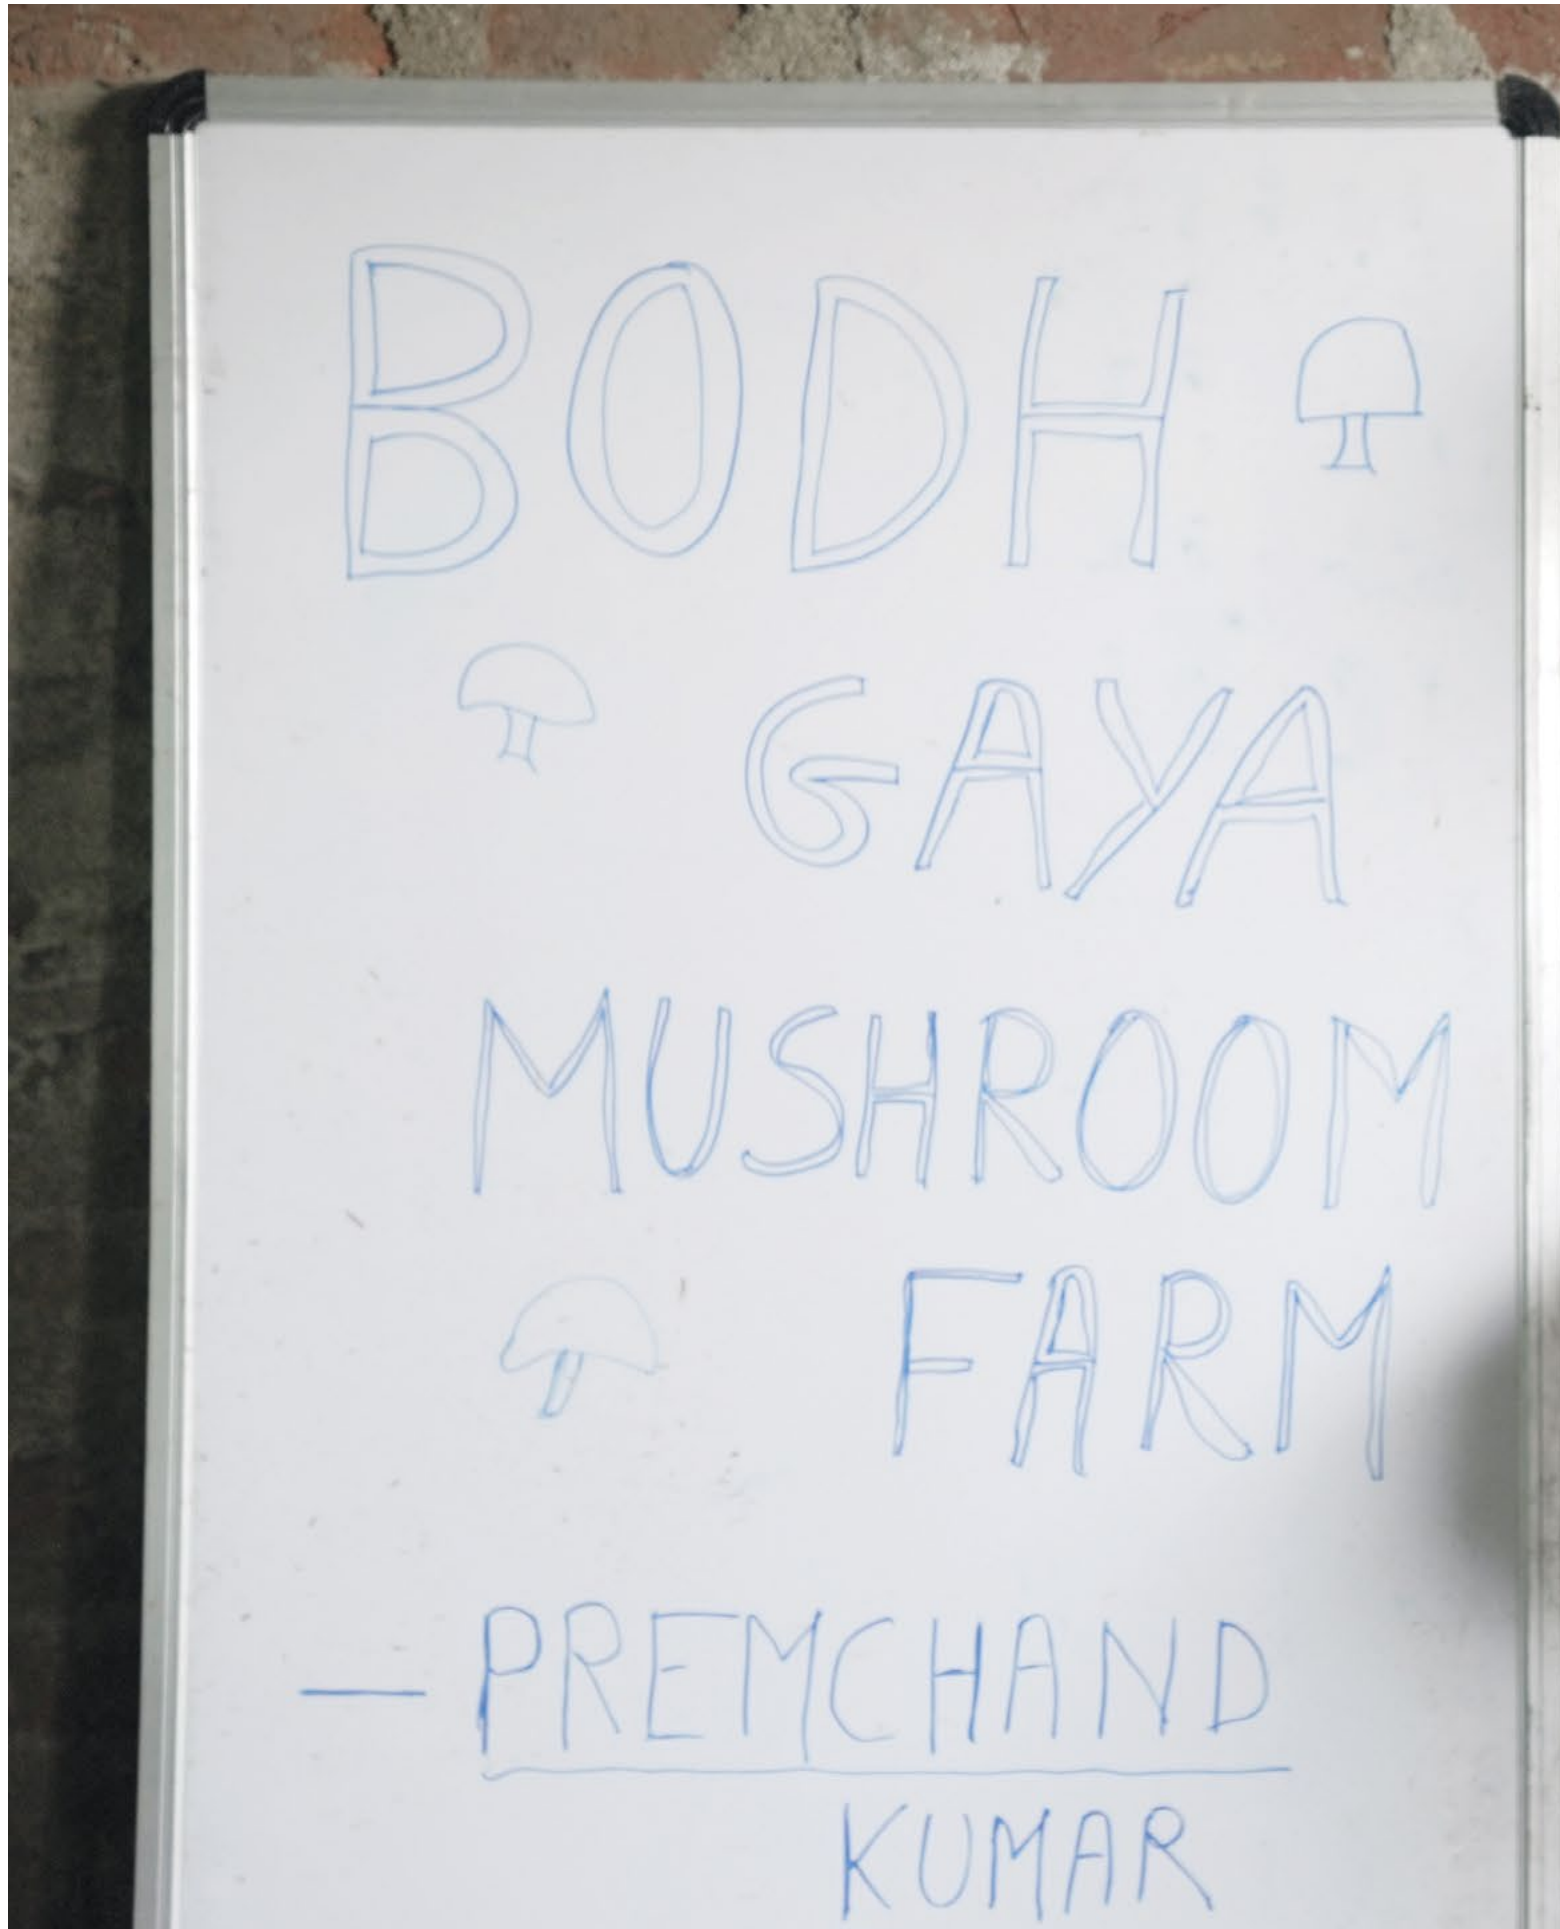 BODH
GAYA
MUSHROOM
FARM
— PREMCHAND
KUMAR